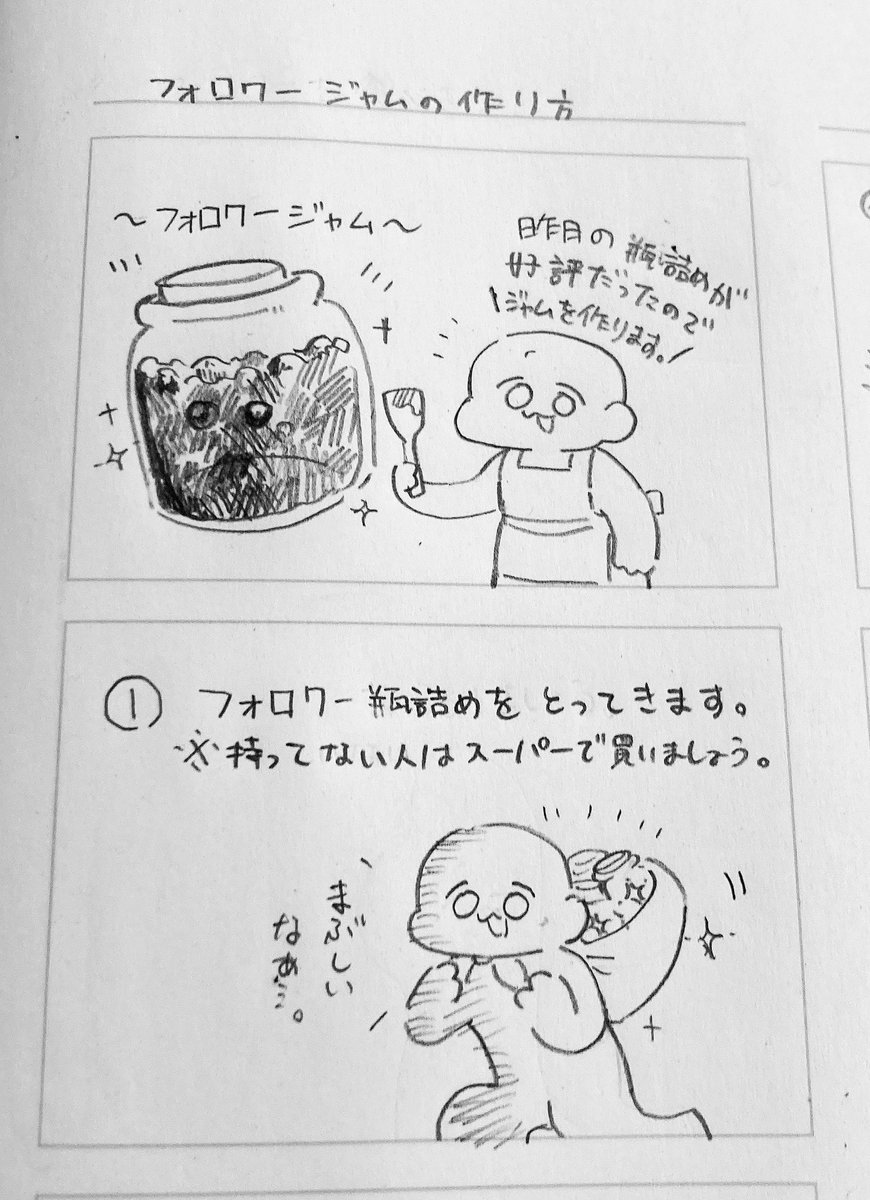 フォロワージャムの作り方
〜フォロワージャム〜
昨日の瓶詰めが
好評だったので
ジャムを作ります。
① フォロワー瓶詰めをとってきます。
※持ってない人はスーパーで買いましょう。
まぶしい
なぁ…。